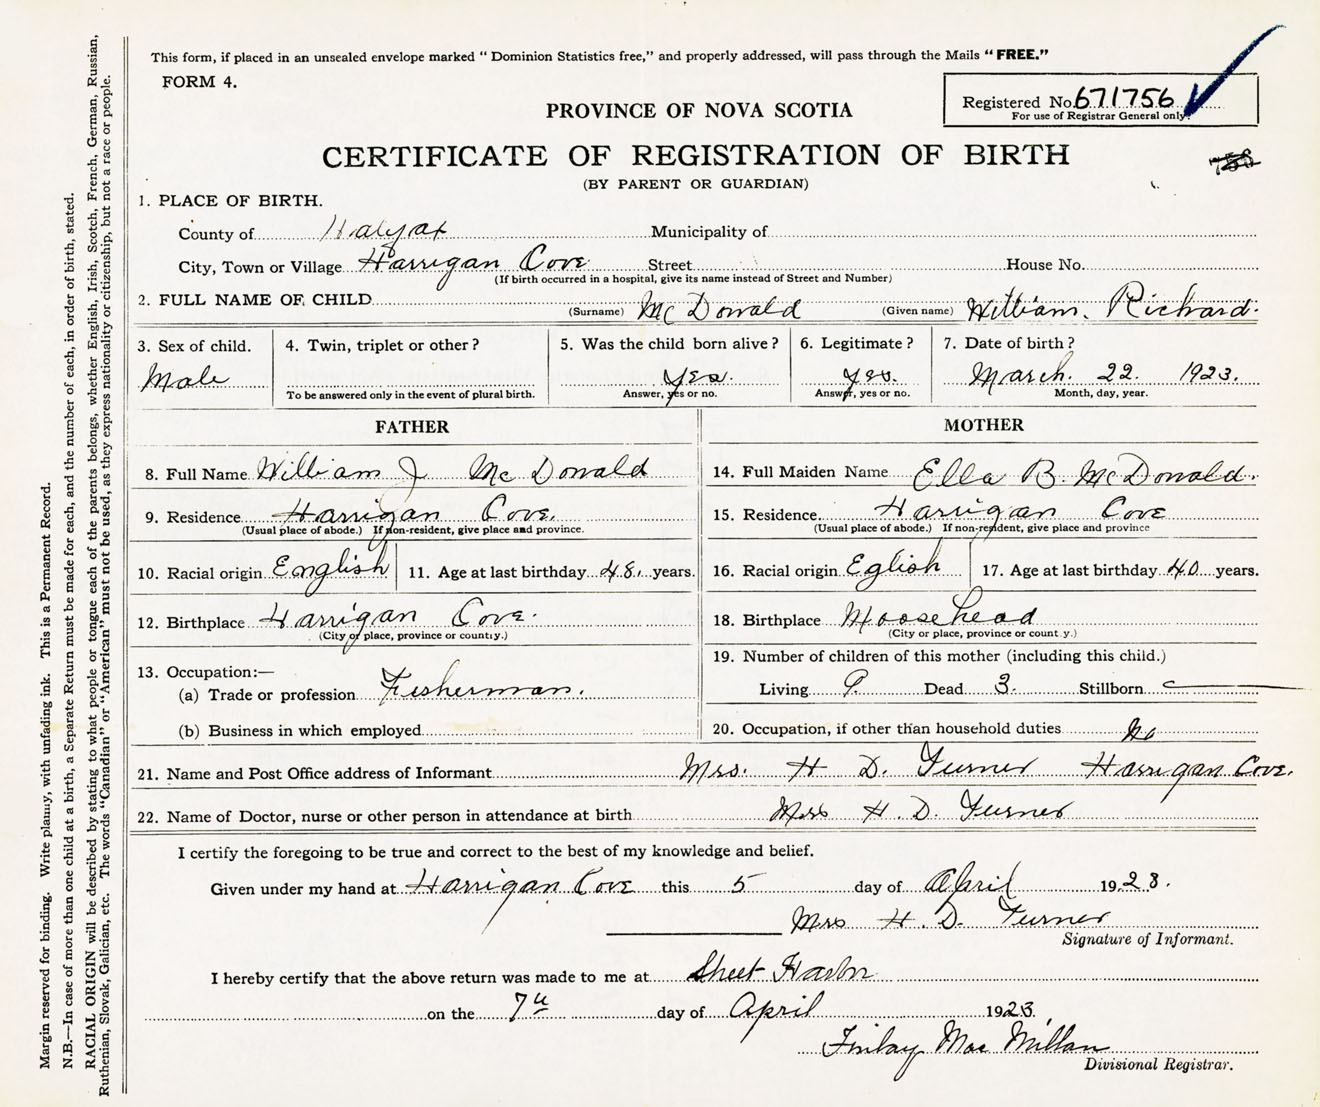 This form, if placed in an unsealed envelope marked “ Dominion Statistics free,” and properly addressed, will pass through the Mails “ FREE.”
FORM 4.
Registered No. 671756
For use of Registrar General only.
PROVINCE OF NOVA SCOTIA
CERTIFICATE OF REGISTRATION OF BIRTH
(BY PARENT OR GUARDIAN)
1. PLACE OF BIRTH.
County of Halifax Municipality of
City, Town or Village Harrigan Cove Street House No.
(If birth occurred in a hospital, give its name instead of Street and Number)
2. FULL NAME OF CHILD (Surname) McDonald (Given name) William. Richard.
3. Sex of child. 4. Twin, triplet or other? 5. Was the child born alive? 6. Legitimate? 7. Date of birth?
Male yes. yes. March. 22. 1923.
To be answered only in the event of plural birth. Answer, yes or no. Answer, yes or no. Month, day, year.
FATHER MOTHER
8. Full Name William J McDonald 14. Full Maiden Name Ella B. McDonald.
9. Residence Harrigan Cove. 15. Residence Harrigan Cove
(Usual place of abode.) If non-resident, give place and province. (Usual place of abode.) If non-resident, give place and province
10. Racial origin English 11. Age at last birthday 48. years. 16. Racial origin Eglish 17. Age at last birthday 40 years.
12. Birthplace Harrigan Cove. 18. Birthplace Moosehead
(City or place, province or county.) (City or place, province or county.)
13. Occupation:— 19. Number of children of this mother (including this child.)
(a) Trade or profession Fisherman. Living 9. Dead 3. Stillborn
(b) Business in which employed 20. Occupation, if other than household duties No
21. Name and Post Office address of Informant Mrs. H D. Turner Harrigan Cove.
22. Name of Doctor, nurse or other person in attendance at birth Mrs H. D. Turner
I certify the foregoing to be true and correct to the best of my knowledge and belief.
Given under my hand at Harrigan Cove this 5 day of April 1923.
Mrs H. D. Turner
Signature of Informant.
I hereby certify that the above return was made to me at Sheet Harbor
on the 7th day of April 1923.
Finlay MacMillan
Divisional Registrar.
Margin reserved for binding. Write plainly, with unfading ink. This is a Permanent Record.
N.B.—In case of more than one child at a birth, a Separate Return must be made for each, and the number of each, in order of birth, stated.
RACIAL ORIGIN will be described by stating to what people or tongue each of the parents belongs, whether English, Irish, Scotch, French, German, Russian,
Ruthenian, Slovak, Galician, etc. The words “Canadian” or “American” must not be used, as they express nationality or citizenship, but not a race or people.